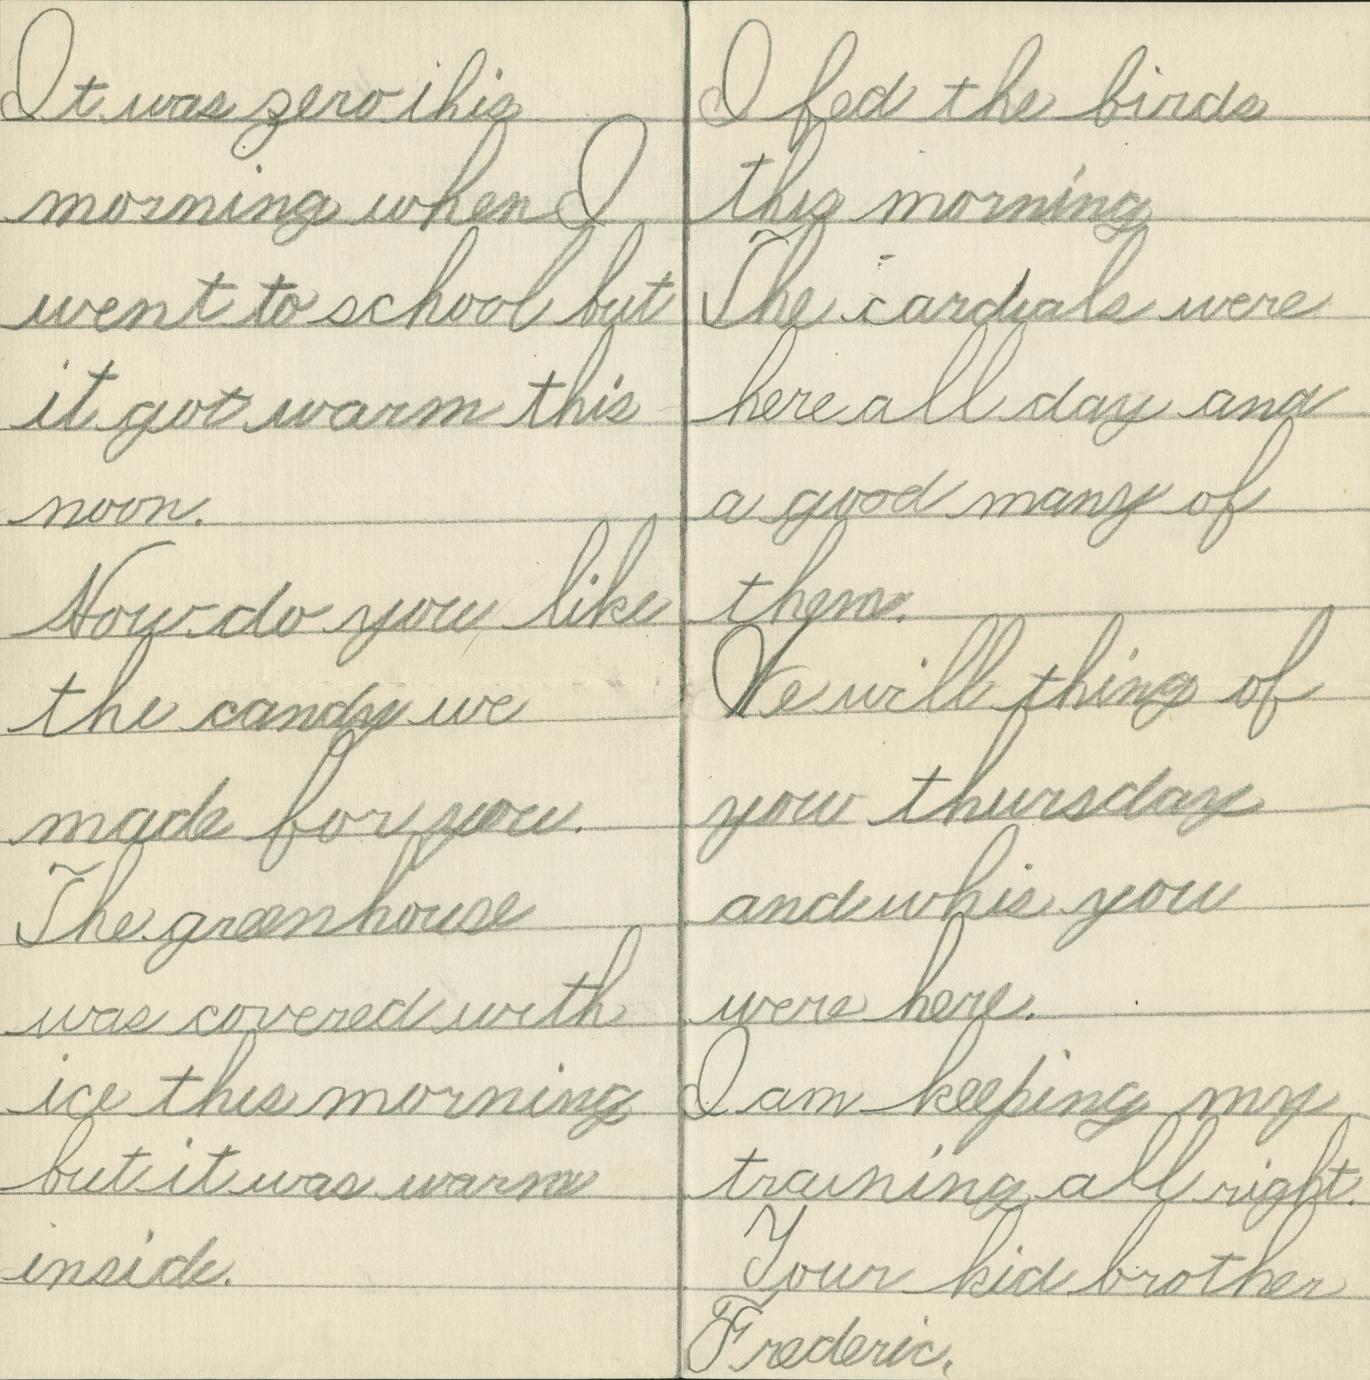 It was zero this
morning when I
went to school but
it got warm this
noon.
How do you like
the candy we
made for you.
The greenhouse
was covered with
ice this morning
but it was warm
inside.
I fed the birds
this morning
The cardials were
here all day and
a good many of
them.
We will thing of
you thursday
and whis you
were here.
I am keeping my
training all right.
Your kid brother
Frederic.